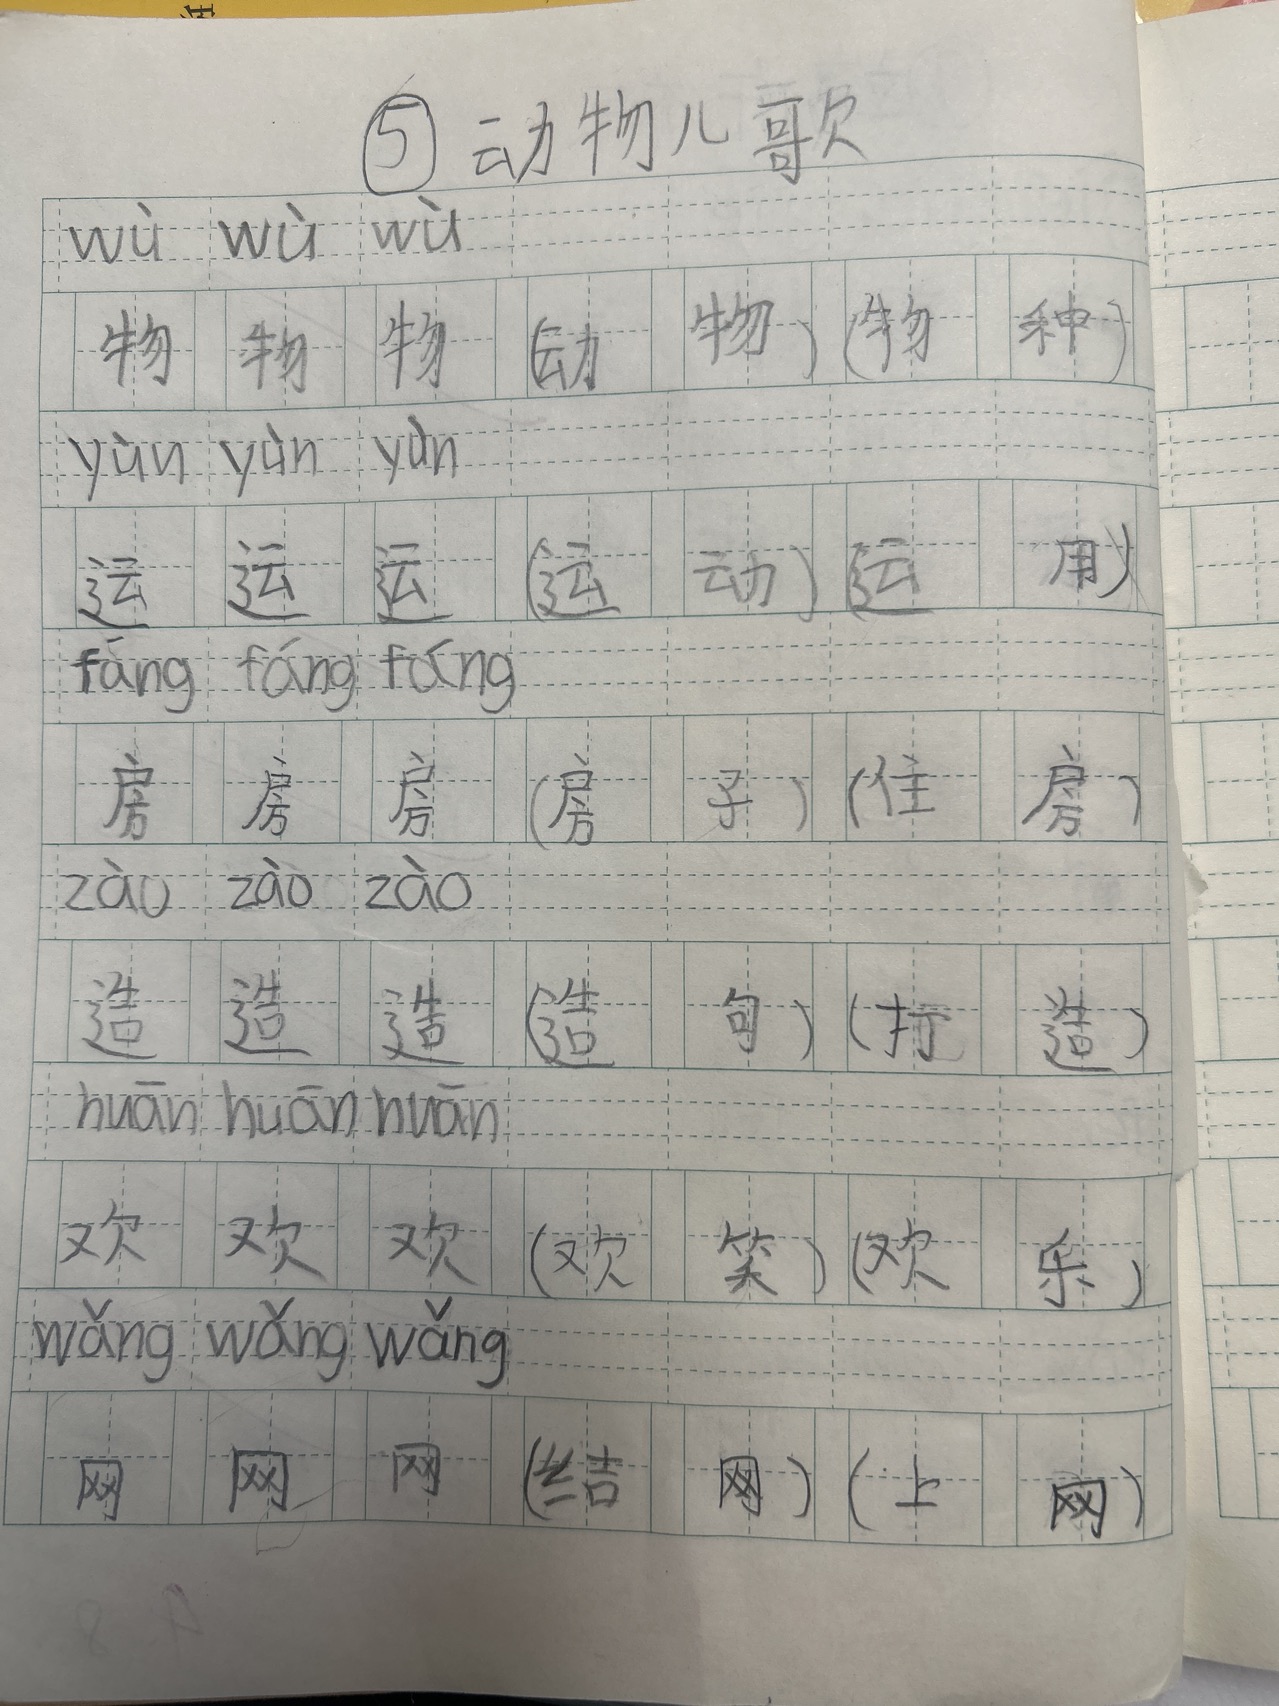 ⑤动物儿歌
wù wù wù
物 物 物 (动 物) (物 种)
yùn yùn yùn
运 运 运 (运 动) (运 用)
fáng fáng fáng
房 房 房 (房 子) (住 房)
zào zào zào
造 造 造 (造 句) (打 造)
huān huān huān
欢 欢 欢 (欢 笑) (欢 乐)
wǎng wǎng wǎng
网 网 网 (结 网) (上 网)